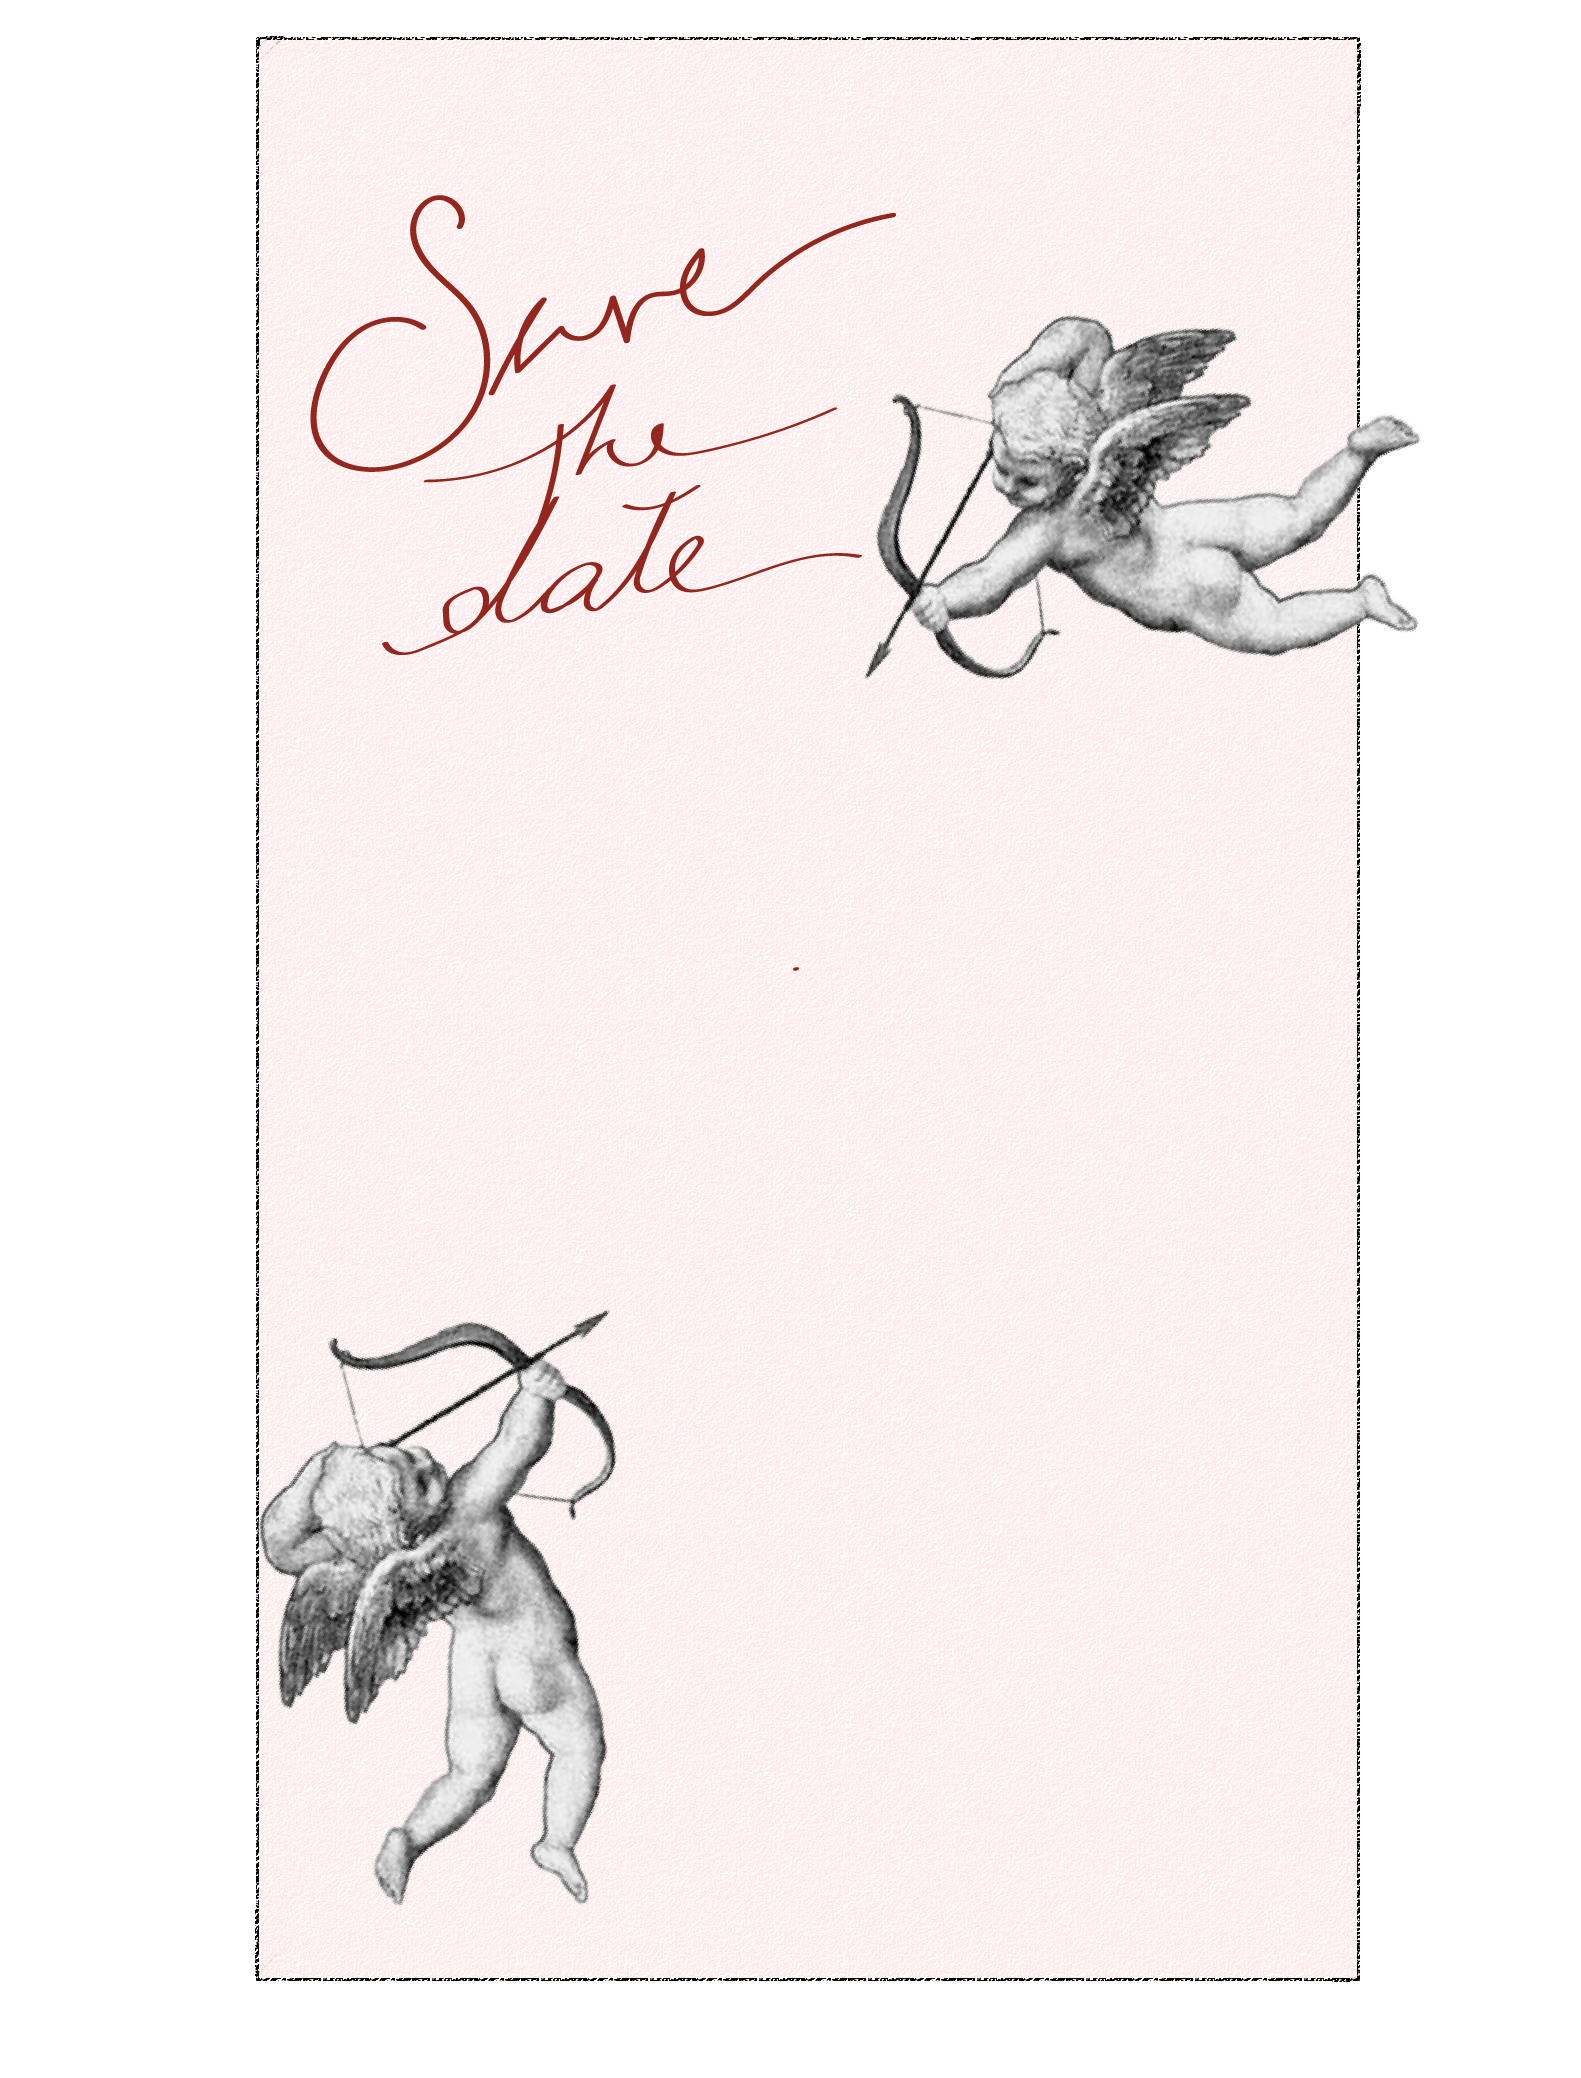 Save
the
date